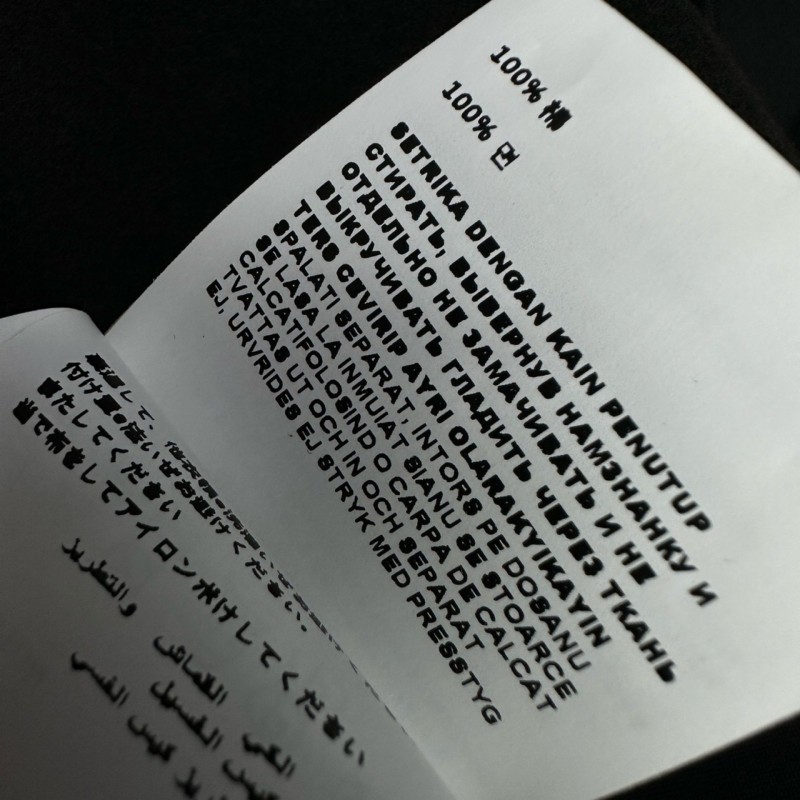 100% 棉
100% 면
SETRIKA DENGAN KAIN PENUTUP
СТИРАТЬ, ВЫВЕРНУВ НАМЗНАНКУ И
ОТДЕЛЬНО НЕ ЗАМАЧИВАТЬ И НЕ
ВЫКРУЧИВАТЬ ГЛАДИТЬ ЧЕРЕЗ ТКАНЬ
TERS CEVIRIP AYRI OLARAKYIKAYIN
SPALATI SEPARAT, INTORS PE DOSANU
SE LASA LA INMUIAT SIANU SE STOARCE
CALCATIFOLOSIND O CARPA DE CALCAT
TVATTAS UT OCH IN OCH SEPARAT
EJ, URVRIDES EJ STRYK MED PRESSTYG
付け置き洗いはお避けください。
またしてください
当て布をしてアイロンがけしてください
والتطريز
الكي القماش
الغسيل
كيس الغسي